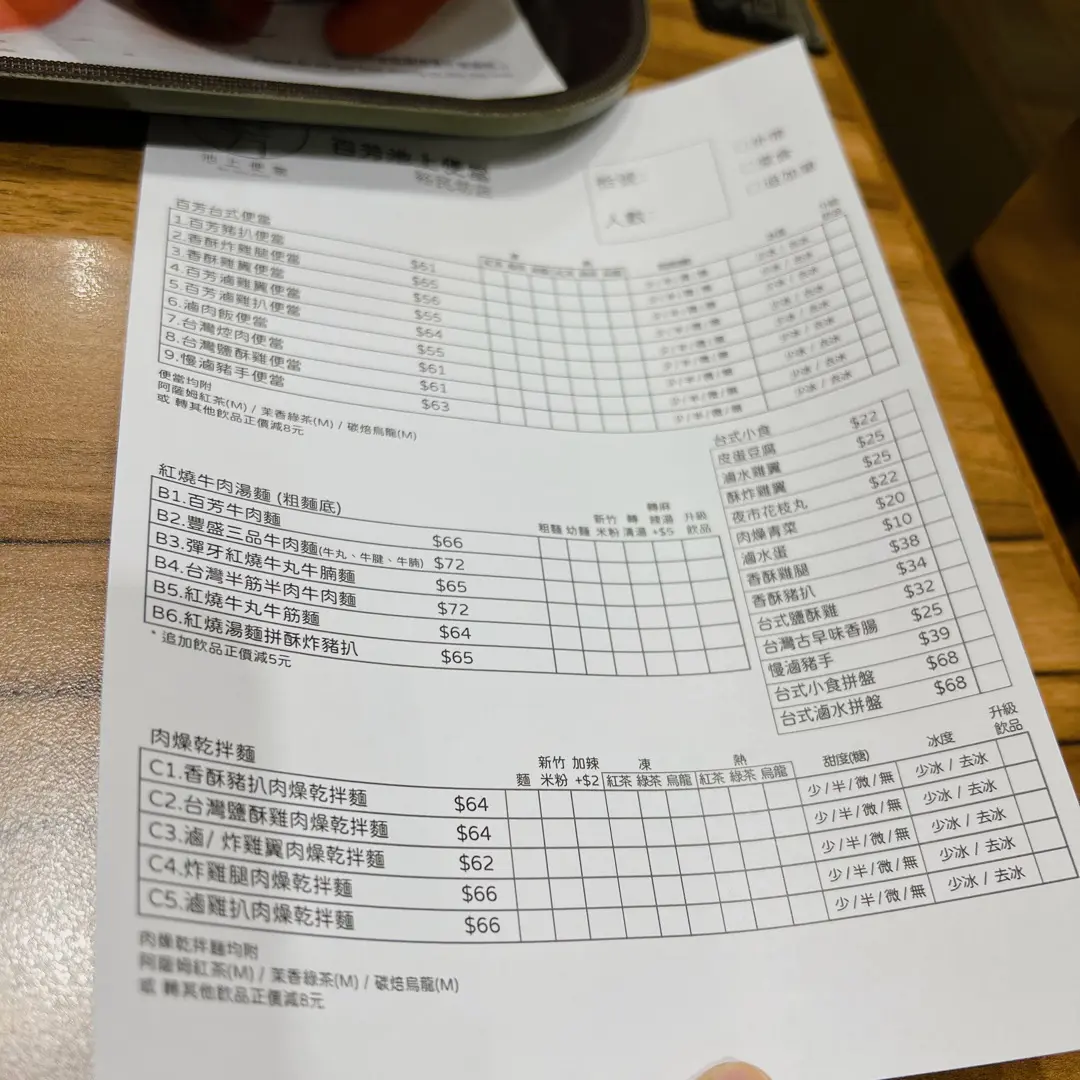 池上便當
百芳池上便當
裕民坊店
枱號:
人數:
外帶
堂食
追加單
百芳台式便當
升級
飲品
1.百芳豬扒便當
2.香酥炸雞腿便當 $65
3.香酥雞翼便當 $56
4.百芳滷雞翼便當 $55
5.百芳滷雞扒便當 $64
6.滷肉飯便當 $55
7.台灣焢肉便當 $61
8.台灣鹽酥雞便當 $61
9.慢滷豬手便當 $63
少/半/微/無 少冰 / 去冰
少/半/微/無 少冰 / 去冰
少/半/微/無 少冰 / 去冰
少/半/微/無 少冰 / 去冰
少/半/微/無 少冰 / 去冰
少/半/微/無 少冰 / 去冰
少/半/微/無 少冰 / 去冰
少/半/微/無 少冰 / 去冰
少/半/微/無 少冰 / 去冰
便當均附
阿薩姆紅茶(M) / 茉香綠茶(M) / 碳焙烏龍(M)
或 轉其他飲品正價減8元
台式小食
皮蛋豆腐 $22
滷水雞翼 $25
酥炸雞翼 $25
夜市花枝丸 $22
肉燥青菜 $20
滷水蛋 $10
香酥雞腿 $38
香酥豬扒 $34
台式鹽酥雞 $32
台灣古早味香腸 $25
慢滷豬手 $39
台式小食拼盤 $68
台式滷水拼盤 $68
紅燒牛肉湯麵 (粗麵底)
粗麵 幼麵 新竹米粉 轉清湯 轉麻辣湯+$5 升級飲品
B1.百芳牛肉麵 $66
B2.豐盛三品牛肉麵(牛丸、牛腱、牛腩) $72
B3.彈牙紅燒牛丸牛腩麵 $65
B4.台灣半筋半肉牛肉麵 $72
B5.紅燒牛丸牛筋麵 $64
B6.紅燒湯麵拼酥炸豬扒 $65
* 追加飲品正價減5元
肉燥乾拌麵
麵 新竹米粉 加辣+$2 凍 紅茶 綠茶 烏龍 熱 紅茶 綠茶 烏龍 甜度(糖) 冰度 升級飲品
C1.香酥豬扒肉燥乾拌麵 $64 少/半/微/無 少冰 / 去冰
C2.台灣鹽酥雞肉燥乾拌麵 $64 少/半/微/無 少冰 / 去冰
C3.滷/ 炸雞翼肉燥乾拌麵 $62 少/半/微/無 少冰 / 去冰
C4.炸雞腿肉燥乾拌麵 $66 少/半/微/無 少冰 / 去冰
C5.滷雞扒肉燥乾拌麵 $66 少/半/微/無 少冰 / 去冰
肉燥乾拌麵均附
阿薩姆紅茶(M) / 茉香綠茶(M) / 碳焙烏龍(M)
或 轉其他飲品正價減8元